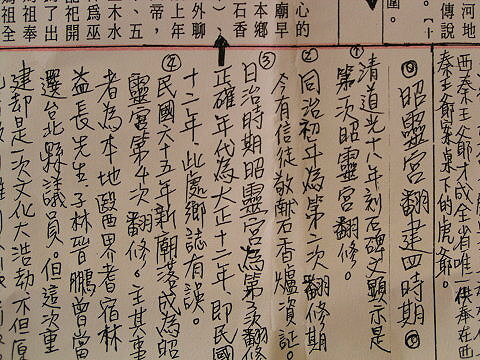 河地
傳說
【十
圍。
心的
廟早
本鄉
石香
）、
外聊
上年
帝，
、五
木水
為巫
了出
祖奉
祖全
西秦王爺才成全省唯一供奉在西
秦王爺案桌下的虎爺。
◎昭靈宮翻建四時期◎
①清道光十八年刻石碑文顯示是
第一次昭靈宮翻修。
②同治初年為第二次翻修期
今有信徒敬献石香爐資証。
③日治時期昭靈宮為第三次翻修
正確年代為大正十二年,即民國
十二年,此處鄉誌有誤。
④民國六十五年新廟落成為昭
靈宮第4次翻修。主其事
者為本地醫界者宿林
益長先生,子林晉鵬曾當
選台北縣議員。但這次重
建却是次文化大浩劫不但原